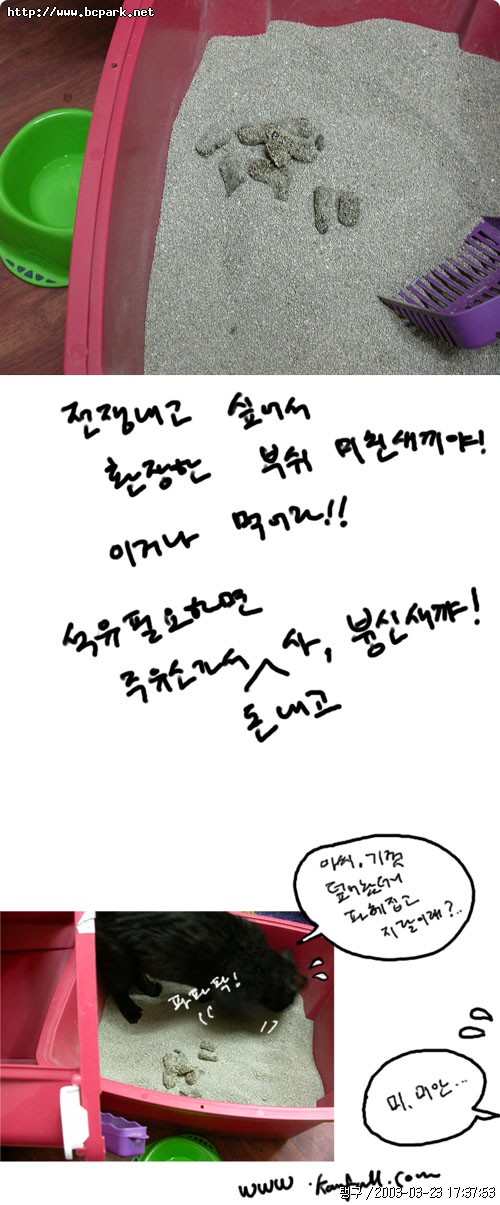 http://www.bcpark.net
전쟁내고 싶어서
환장한 부쉬 미친새끼야!
이거나 먹어라!!
석유필요하면
주유소가서 사, 붕신새꺄!
돈내고
아씨, 기껏
덮어놨더니
파헤집고
지랄이래?..
파파팍!
머, 머안...
www.
/ 2003-03-23 17:37:53